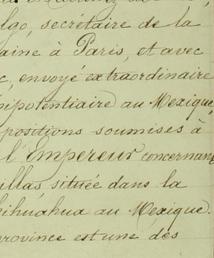 lgo, secrétaire de la
aine à Paris, et avec
c, envoyé extraordinaire
nipotentiaire au Mexique,
positions soumises à
l'Empereur concernant
illas, située dans la
hihuahua au Mexique.
province est une des